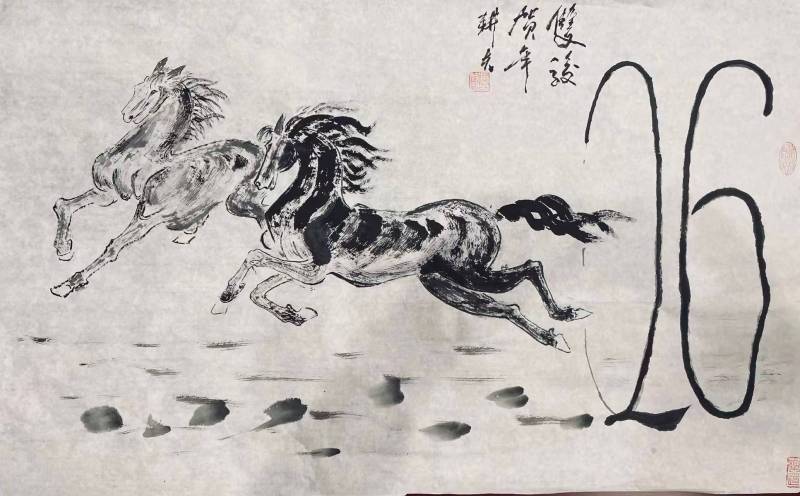 26
雙駿
賀年
耕